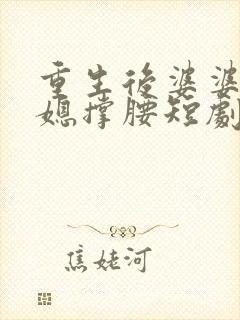 重生後婆婆
媳撐腰短劇
焦姥河